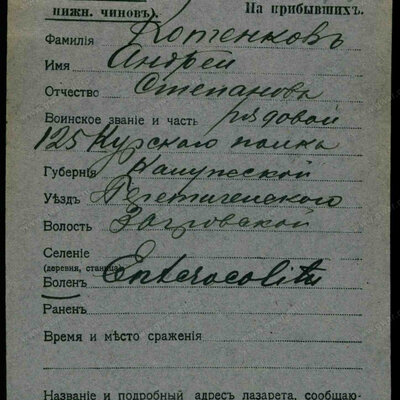 нижн. чиновъ). На прибывшихъ.
Фамилія Котенковъ
Имя Андрей
Отчество Степановъ
Воинское званіе и часть рядовой
125 Курского полка
Губернія Калужской
Уѣздъ
Волость
Селеніе
(деревня, станица)
Боленъ Enterocolitis
Раненъ
Время и мѣсто сраженія
Названіе и подробный адресъ лазарета, сообщаю-